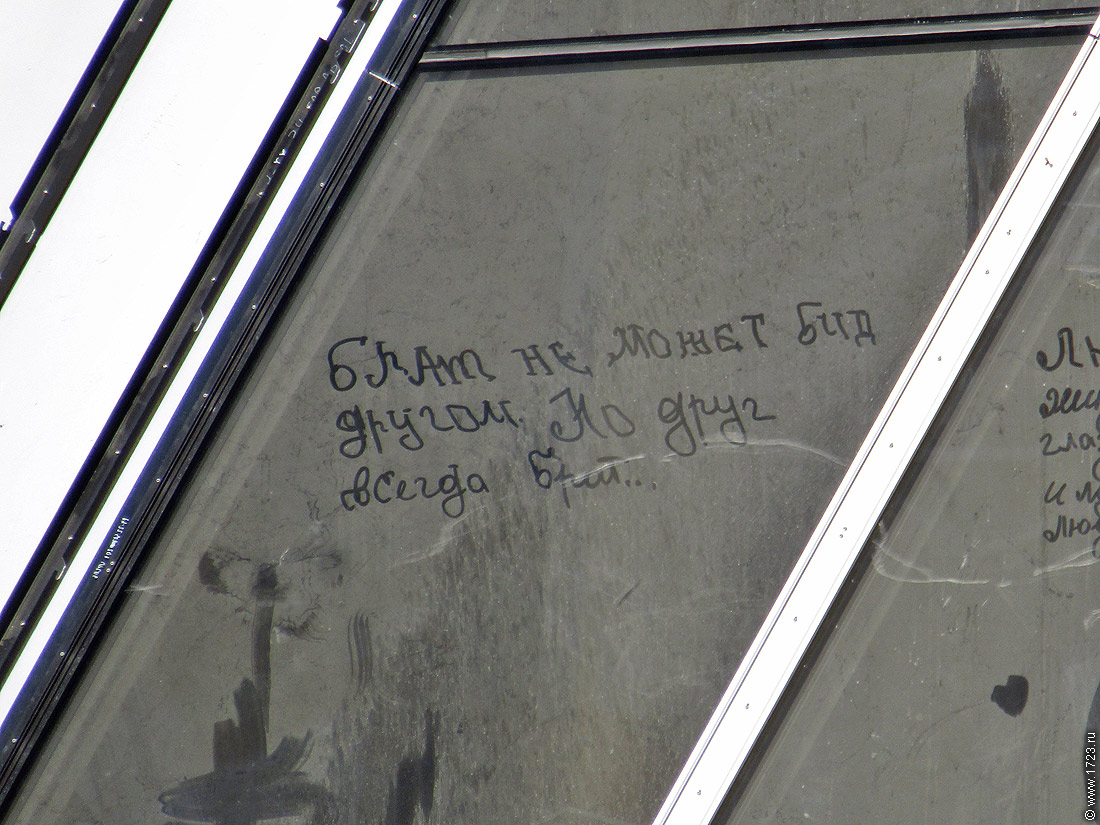 БРАТ не может БИД
другом. Но друг
всегда
Лю
жи
гла
и л
лю
© www.1723.ru